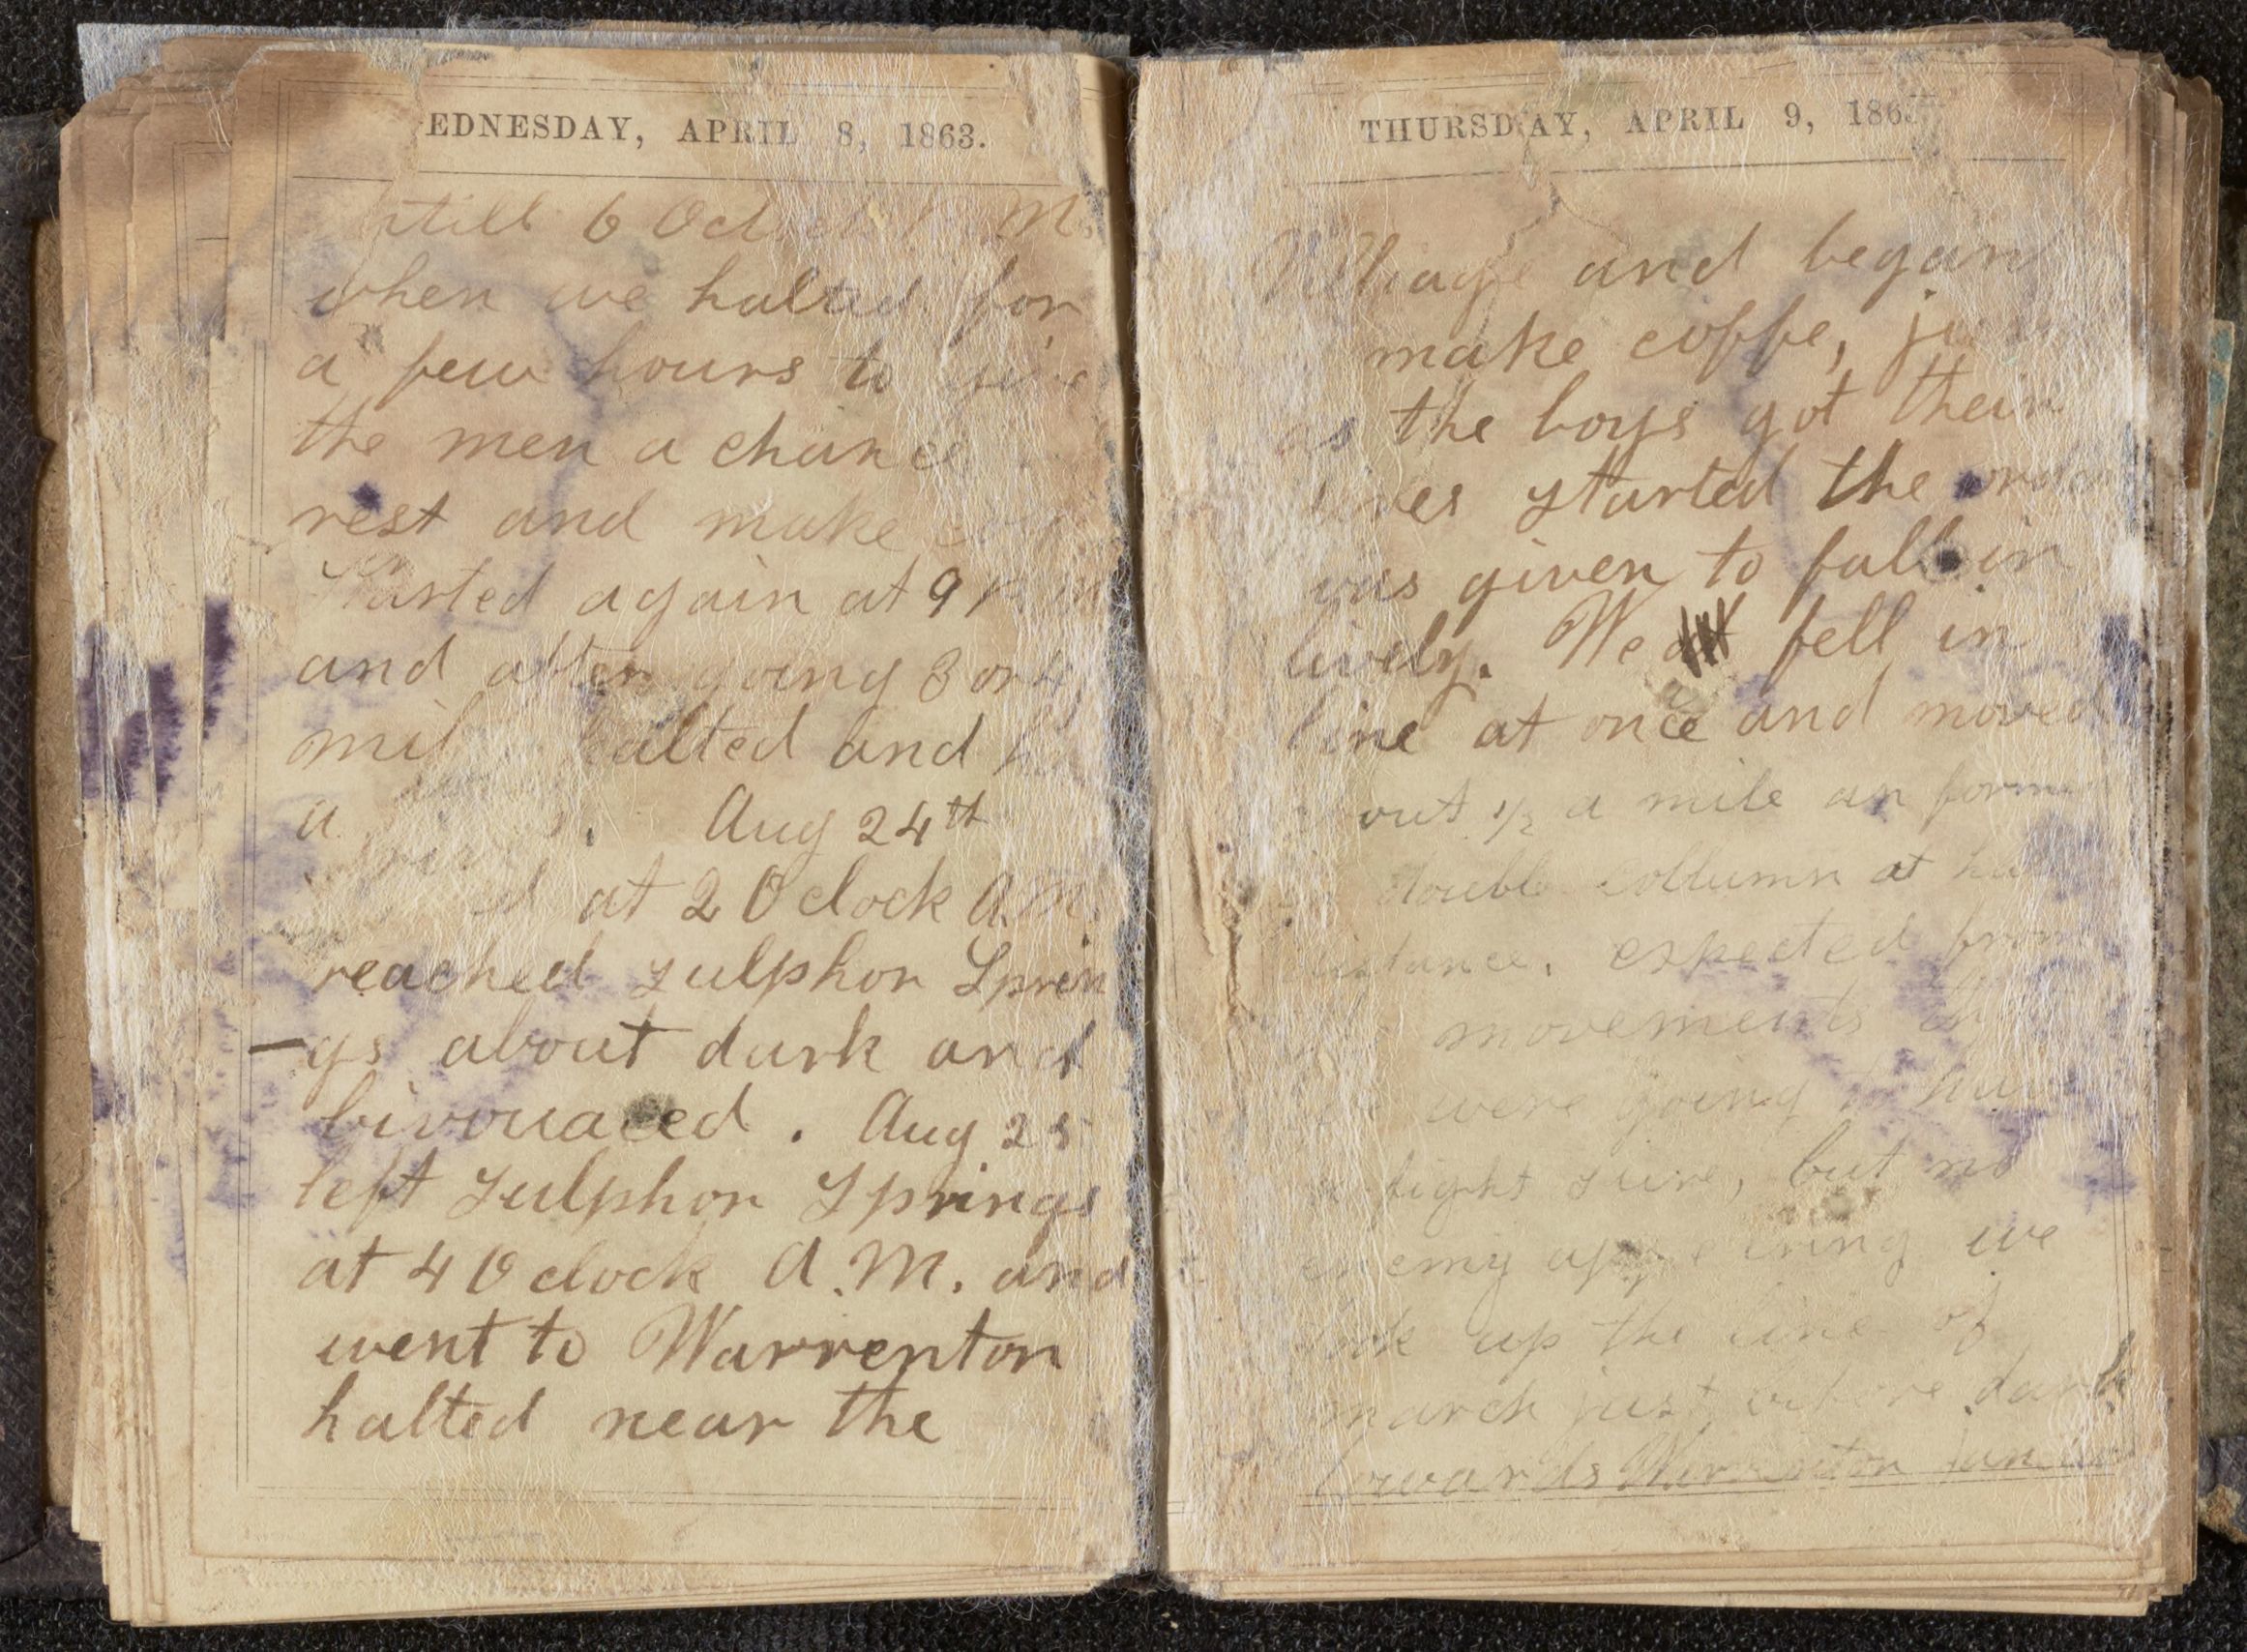 EDNESDAY, APRIL 8, 1863.
till 6 M.
when we halted for
a few hours to give
the men a chance
rest and make
Started again at 9 P M
and after going 3 or 4
mil halted and
a Aug 24th
at 2 O clock A.M.
reached Sulphor Sprin
-gs about dark and
bivouaced. Aug 25
left Sulphor Springs
at 4 O clock A.M. and
went to Warrenton
halted near the
THURSDAY, APRIL 9, 186
Village and began
make coffe,
as the boys got their
fires started the order
was given to fall in
lively. We fell in
line at once and moved
out 1/2 a mile an form
double collumn at
distance. expected from
movements
were going to
fight sure, but no
enemy appeering we
took up the line of
march just before dark
towards Warrenton